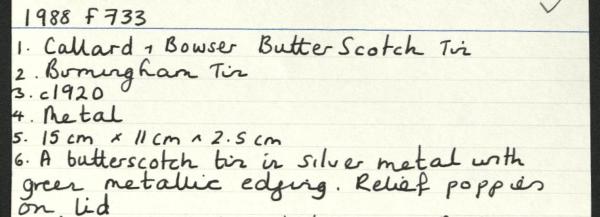 1988 F733
1. Callard + Bowser Butter Scotch Tin
2. Birmingham Tin
3. c1920
4. Metal
5. 15 cm x 11 cm x 2.5 cm
6. A butterscotch tin in silver metal with
green metallic edging. Relief poppies
on lid